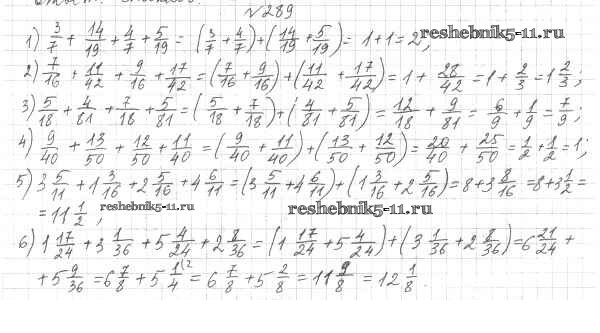 №289
1) 3/7 + 14/19 + 4/7 + 5/19 = (3/7 + 4/7) + (14/19 + 5/19) = 1 + 1 = 2;
reshebnik5-11.ru
2) 7/16 + 11/42 + 9/16 + 17/42 = (7/16 + 9/16) + (11/42 + 17/42) = 1 + 28/42 = 1 + 2/3 = 1 2/3;
3) 5/18 + 4/81 + 7/18 + 5/81 = (5/18 + 7/18) + (4/81 + 5/81) = 12/18 + 9/81 = 6/9 + 1/9 = 7/9;
4) 9/40 + 13/50 + 12/50 + 11/40 = (9/40 + 11/40) + (13/50 + 12/50) = 20/40 + 25/50 = 1/2 + 1/2 = 1;
5) 3 5/11 + 1 3/16 + 2 5/16 + 4 6/11 = (3 5/11 + 4 6/11) + (1 3/16 + 2 5/16) = 8 + 3 8/16 = 8 + 3 1/2 =
= 11 1/2;
reshebnik5-11.ru
reshebnik5-11.ru
6) 1 17/24 + 3 1/36 + 5 4/24 + 2 8/36 = (1 17/24 + 5 4/24) + (3 1/36 + 2 8/36) = 6 21/24 +
+ 5 9/36 = 6 7/8 + 5 1/4 (2 = 6 7/8 + 5 2/8 = 11 9/8 = 12 1/8.